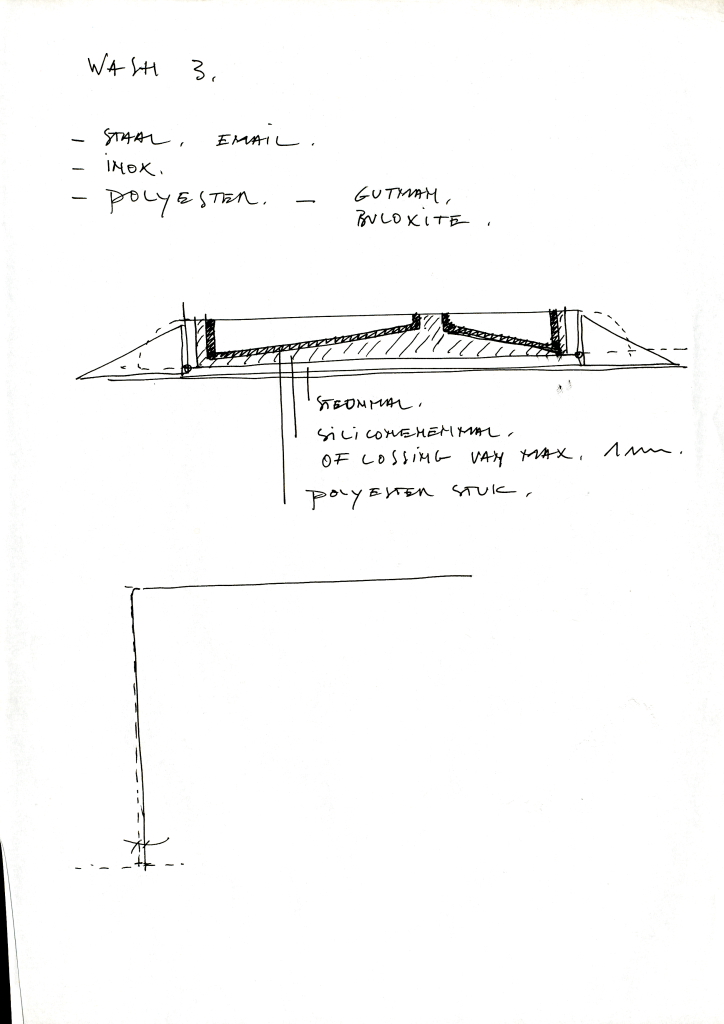 WASH 3.
- STAAL. EMAIL.
- INOX.
- POLYESTER. - GUTMAN,
BULOXITE.
STEUNMAL.
SILICONENENMAL.
OF LOSSING VAN MAX. 1mm.
POLYESTER STUK.